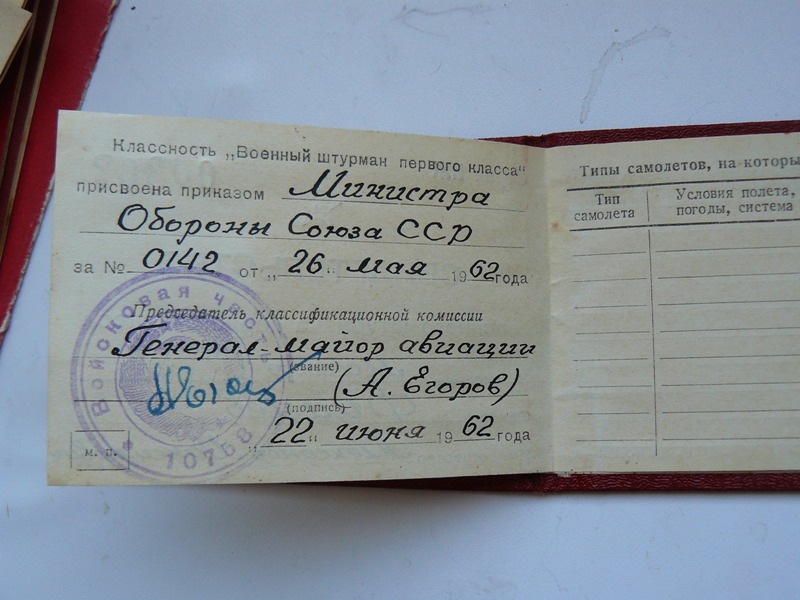 Классность „Военный штурман первого класса“
присвоена приказом Министра
Обороны Союза ССР
за № 0142 от „26“ мая 1962 года
Председатель классификационной комиссии
Генерал-майор авиации
(звание)
(А. Егоров)
(подпись)
„22“ июня 1962 года
м. п.
Войсковая часть
10758
Типы самолетов, на которы
Тип
самолета
Условия полета,
погоды, система